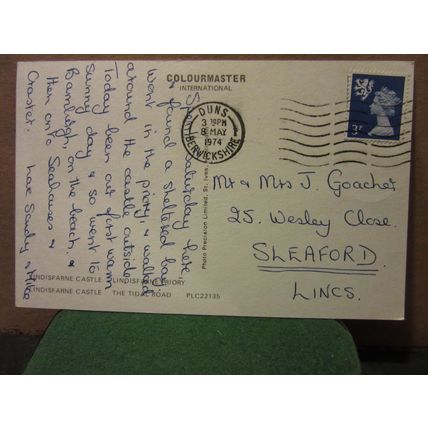 COLOURMASTER
INTERNATIONAL
Spent Saturday here
& found a sheltered bay.
Went in the priory, & walked
around the castle outside.
Today been our first warm
sunny day & so went to
Bamburgh, on the beach, &
then onto Seahouses &
Craster. Love Sandy &
DUNS
3 PM
8 MAY
1974
BERWICKSHIRE
3P
Mr & Mrs J. Goacher
25. Wesley Close.
SLEAFORD.
LINCS.
Photo Precision Limited, St. Ives
LINDISFARNE CASTLE LINDISFARNE PRIORY
LINDISFARNE CASTLE THE TIDAL ROAD PLC22135